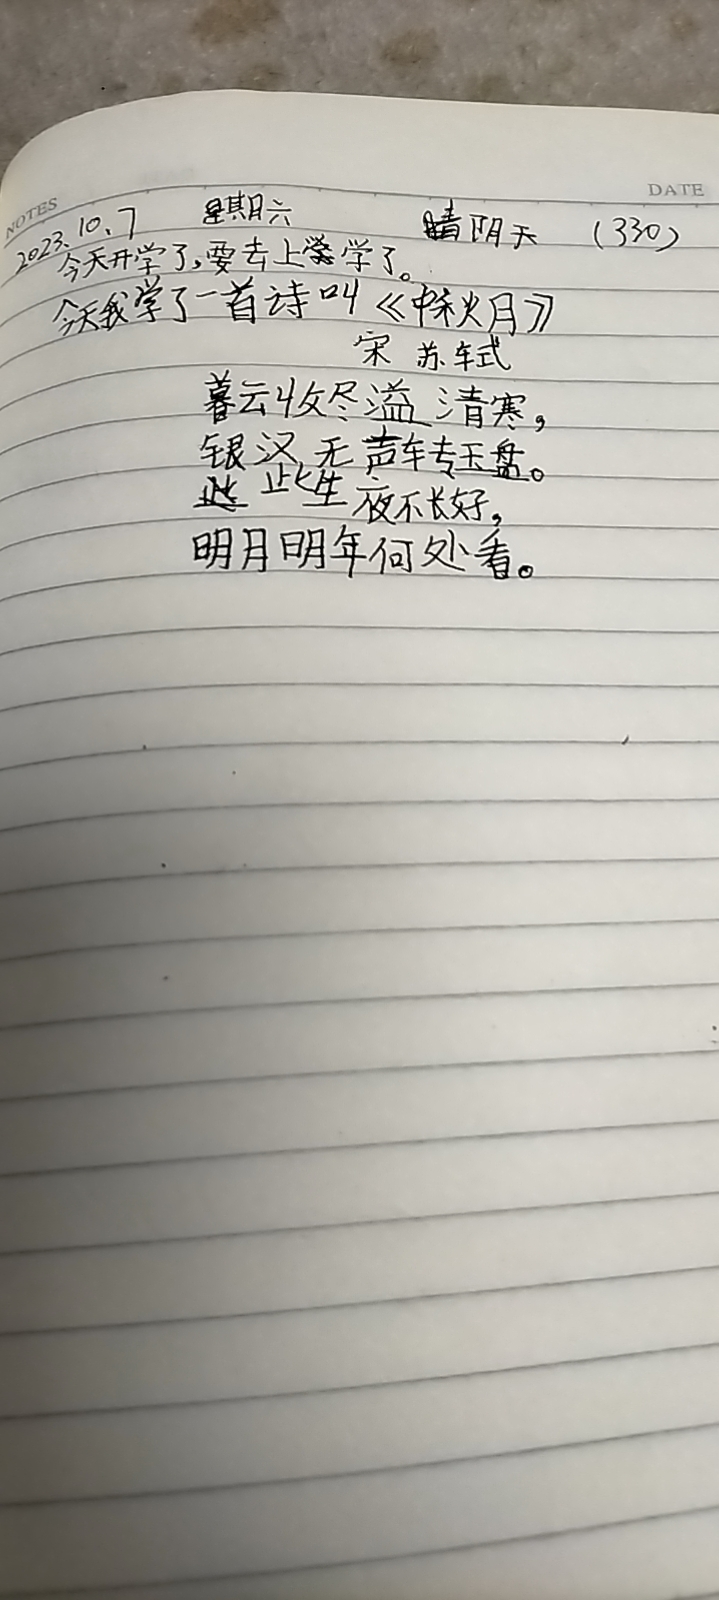 NOTES DATE
2023.10.7 星期六 阴天 (330)
今天开学了,要去上学了。
今天我学了一首诗叫《中秋月》
宋 苏轼
暮云收尽溢清寒,
银汉无声转玉盘。
此生夜不长好,
明月明年何处看。